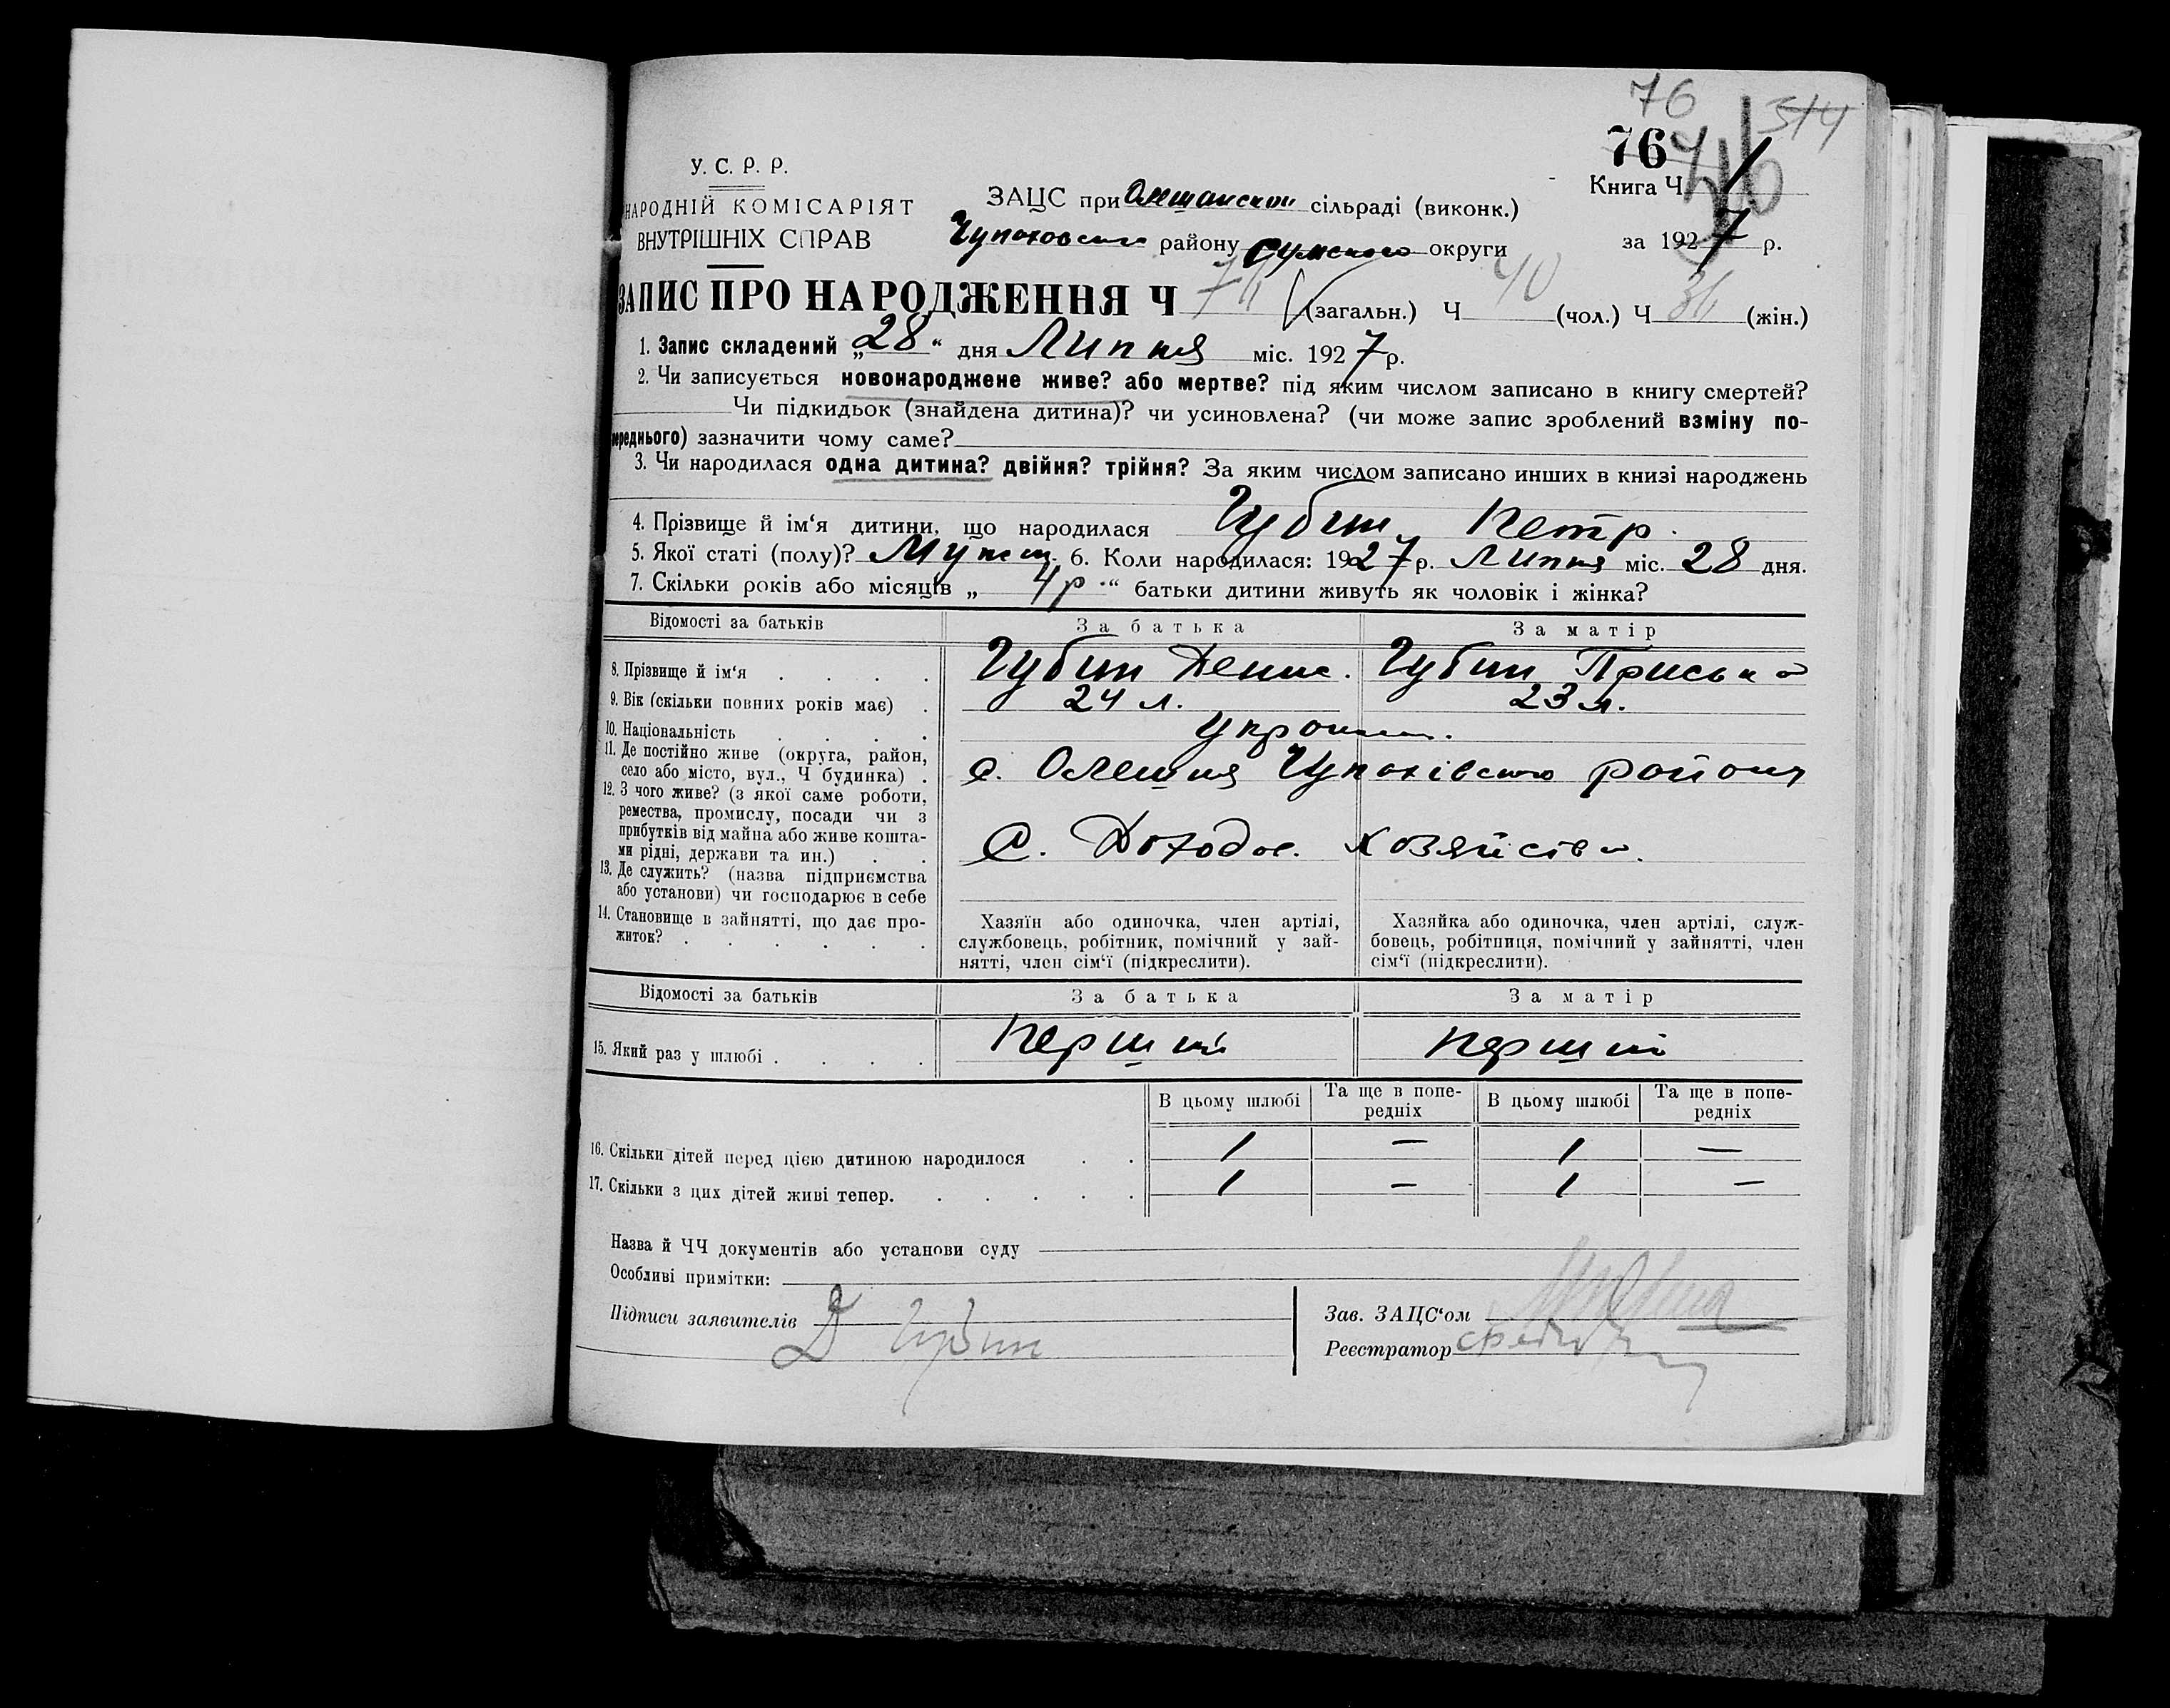 76
314
76
У. С. Р. Р.
Книга Ч. 1
НАРОДНІЙ КОМІСАРІЯТ
ЗАЦС при Олешанскіи сільраді (виконк.)
ВНУТРІШНІХ СПРАВ
Чупаховського району Сумского округи
за 1927 р.
ЗАПИС ПРО НАРОДЖЕННЯ Ч (загальн.) Ч 40 (чол.) Ч 36 (жін.)
1. Запис складений „28“ дня Липня міс. 1927 р.
2. Чи записується новонароджене живе? або мертве? під яким числом записано в книгу смертей?
Чи підкидьок (знайдена дитина)? чи усиновлена? (чи може запис зроблений взміну по-
переднього) зазначити чому саме?
3. Чи народилася одна дитина? двійня? трійня? За яким числом записано инших в книзі народжень
4. Прізвище й ім‘я дитини, що народилася Чубин Петр.
5. Якої статі (полу)? Мужш. 6. Коли народилася: 1927 р. Липня міс. 28 дня.
7. Скільки років або місяців „ 4 р. “ батьки дитини живуть як чоловік і жінка?
Відомості за батьків За батька За матір
8. Прізвище й ім‘я Чубин Денис. Чубин Приська
9. Вік (скільки повних років має) 24 л. 23 л.
10. Національність Украин.
11. Де постійно живе (округа, район,
село або місто, вул., Ч будинка) с. Олешня Чупахівского району
12. З чого живе? (з якої саме роботи,
ремества, промислу, посади чи з
прибутків від майна або живе кошта-
ми рідні, держави та ин.) С. Доходов. хозяйства.
13. Де служить? (назва підприємства
або установи) чи господарює в себе
14. Становище в зайнятті, що дає про-
житок?
Хазяїн або одиночка, член артілі,
службовець, робітник, помічний у зай-
нятті, член сім‘ї (підкреслити).
Хазяйка або одиночка, член артілі, служ-
бовець, робітниця, помічний у зайнятті, член
сім‘ї (підкреслити).
Відомості за батьків За батька За матір
15. Який раз у шлюбі Перший Перший
В цьому шлюбі Та ще в попе-
редніх В цьому шлюбі Та ще в попе-
редніх
16. Скільки дітей перед цією дитиною народилося 1 — 1 —
17. Скільки з цих дітей живі тепер. 1 — 1 —
Назва й ЧЧ документів або установи суду
Особливі примітки:
Підписи заявителів Д Чубин
Зав. ЗАЦС‘ом
Реєстратор